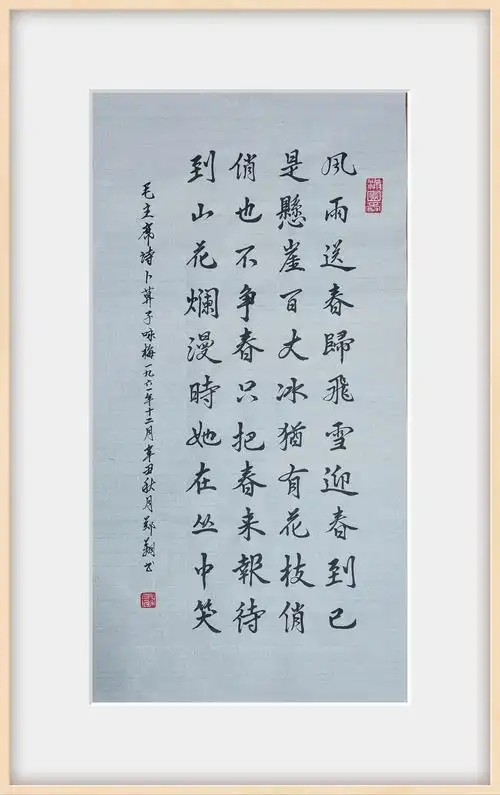 風雨送春歸飛雪迎春到已
是懸崖百丈冰猶有花枝俏
俏也不争春只把春来報待
到山花爛漫時她在丛中笑
毛主席诗卜算子咏梅一九六一年十二月辛丑秋月郑翔书